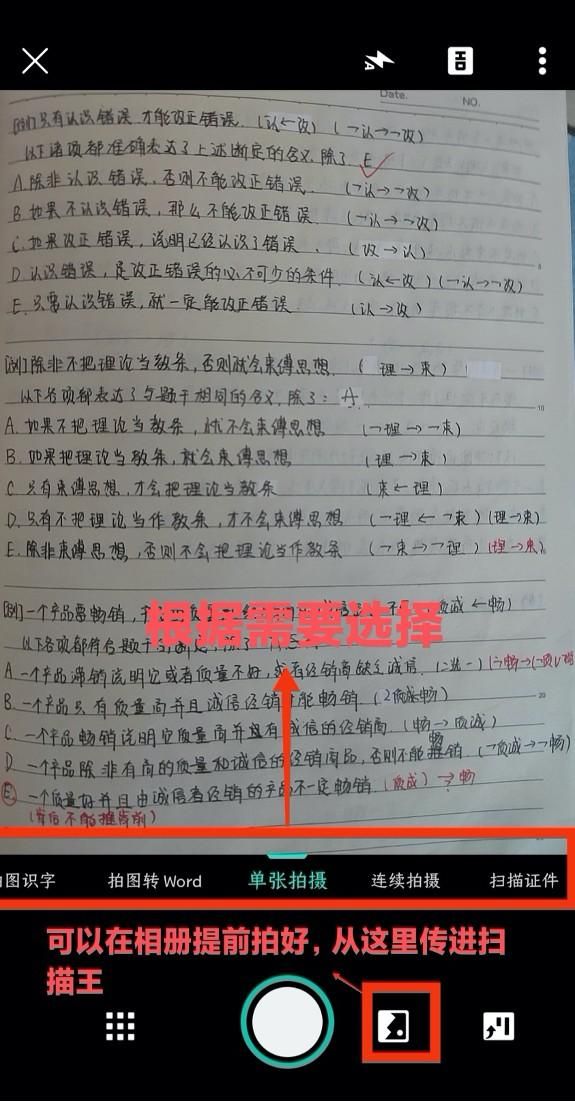 Date.
NO.
[例]只有认识错误 才能改正错误. (认←改) (¬认→¬改)
以下诸项都准确表达了上述断定的含义.除了 E
A.除非认识错误,否则不能改正错误. (¬认→¬改)
B.如果不认识错误,那么不能改正错误 (¬认→¬改)
C.如果改正错误,说明已经认识了错误 (改→认)
D.认识错误,是改正错误的必不可少的条件. (认←改) (¬认→¬改)
E.只要认识错误,就一定能改正错误. (认→改)
[例]除非不把理论当教条,否则就会束缚思想. ( 理→束)
以下各项都表达了与题干相同的含义.除了: A
10
A.如果不把理论当教条,就不会束缚思想 (¬理→¬束)
B.如果把理论当教条,就会束缚思想 (理→束)
C.只有束缚思想,才会把理论当教条 (束←理)
D.只有不把理论当作教条,才不会束缚思想 (¬理←¬束) (理→束)
E.除非束缚思想,否则不会把理论当作教条 (¬束→¬理) (理→束)
[例]一个产品要畅销,
质诚←畅)
根据需要选择
以下各项都符合题干
A.一个产品滞销说明它或者质量不好,或者经销商缺乏诚信.
B.一个产品只有质量高并且诚信经销才能畅销. (质诚←畅)
20
C.一个产品畅销说明它质量高并且有诚信的经销商. (畅→质诚)
D.一个产品除非有高的质量和诚信的经销商品,否则不能畅销 (¬质诚→¬畅)
E.一个质量好并且由诚信者经销的产品不一定畅销. (质诚)→畅
(肯后不能推肯前)
拍图识字 拍图转 Word 单张拍摄 连续拍摄 扫描证件
可以在相册提前拍好，从这里传进扫
描王